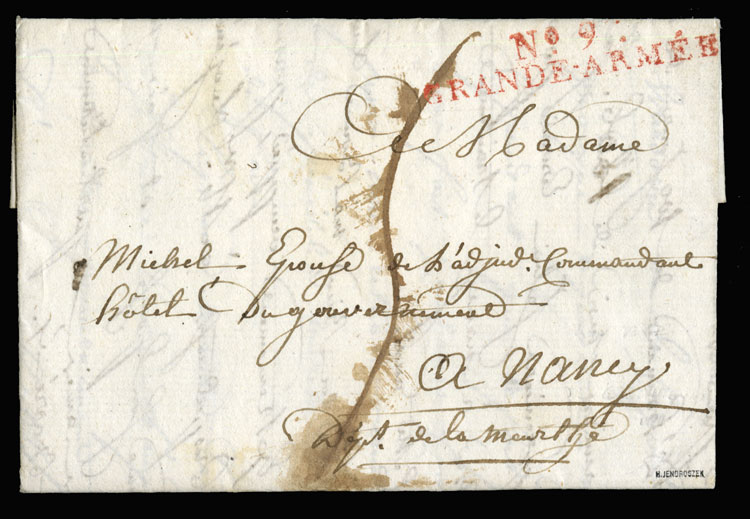 No 9.
GRANDE-ARMÉE
A Madame
Michel Epouse de L'adjudt. Commandant
hôtel Du gouvernement
a Nancy
Dépt. de la Meurthe
H. JENDROSZEK